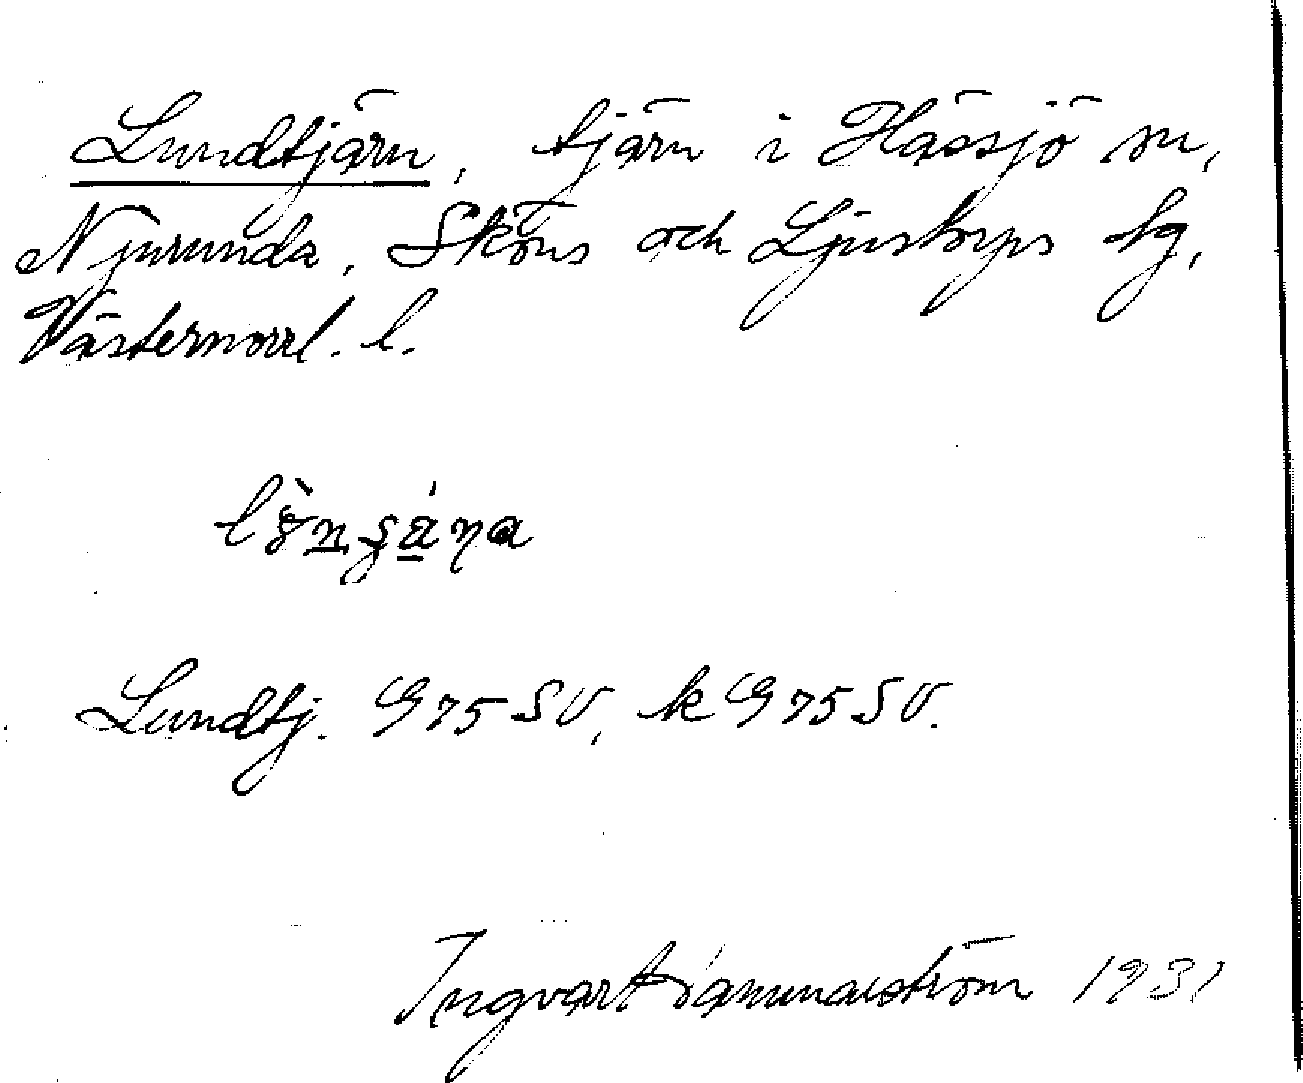 Lundtjärn, tjärn i Hässjö sn,
Njurunda, Sköns och Ljustorps tg,
Västernorrl. l.
Lundtj. G 75 SV, k G 75 SV.
Ingvar Hammarström 1931